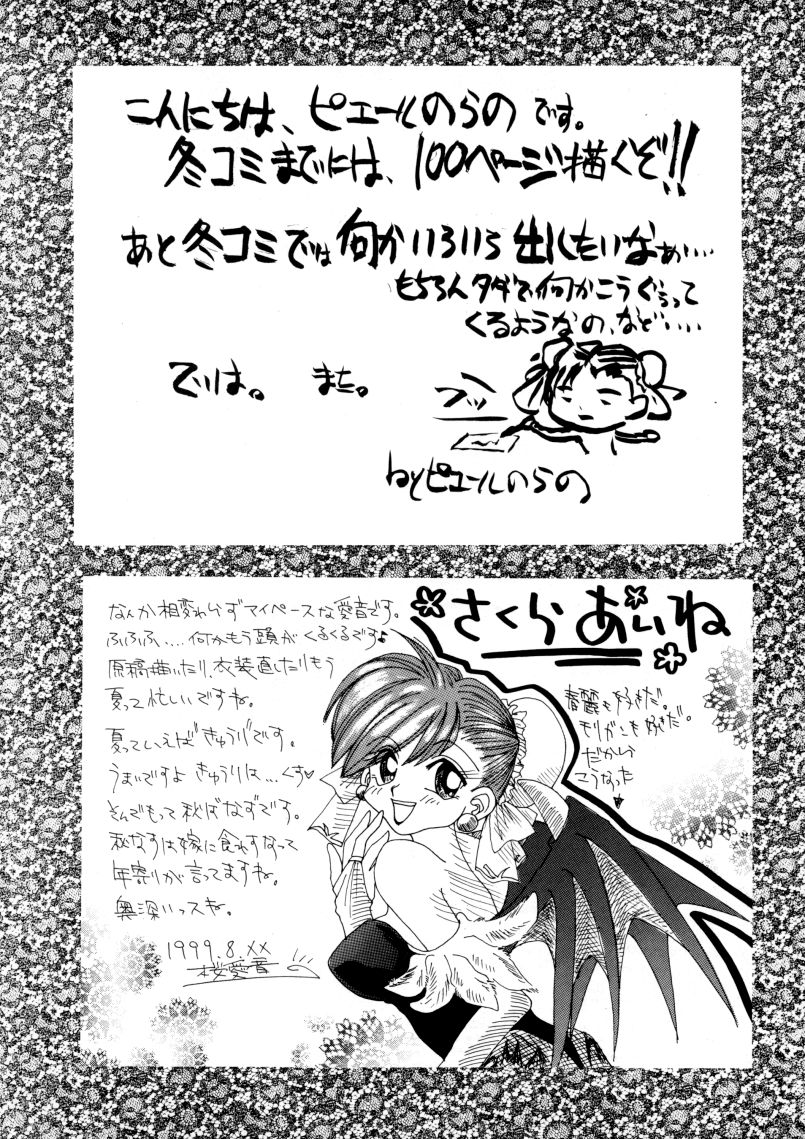 こんにちは、ピエールのらのです。
冬コミまでには、100ページ描くぞ!!
あと冬コミでは何かいろいろ出したいなぁ…
もちろんタダで何かこうぐぅって
くるようなの、など‥‥
では。また。
フッ
byピエールのらの
さくらあいね
なんか相変わらずマイペースな愛音です。
ふふふ‥‥何かもう頭がくるくるです♪
原稿描いたり、衣装直したりもう
夏って忙しいですね。
夏っていえばきゅうりです。
うまいですよきゅうりは…くす♡
そんでもって秋ばなすです。
秋なすは嫁に食わすなって
年寄りが言ってますね。
奥深いっスね。
1999.8.XX
桜愛音
春麗も好きだ。
モリガンも好きだ。
だから
こうなった